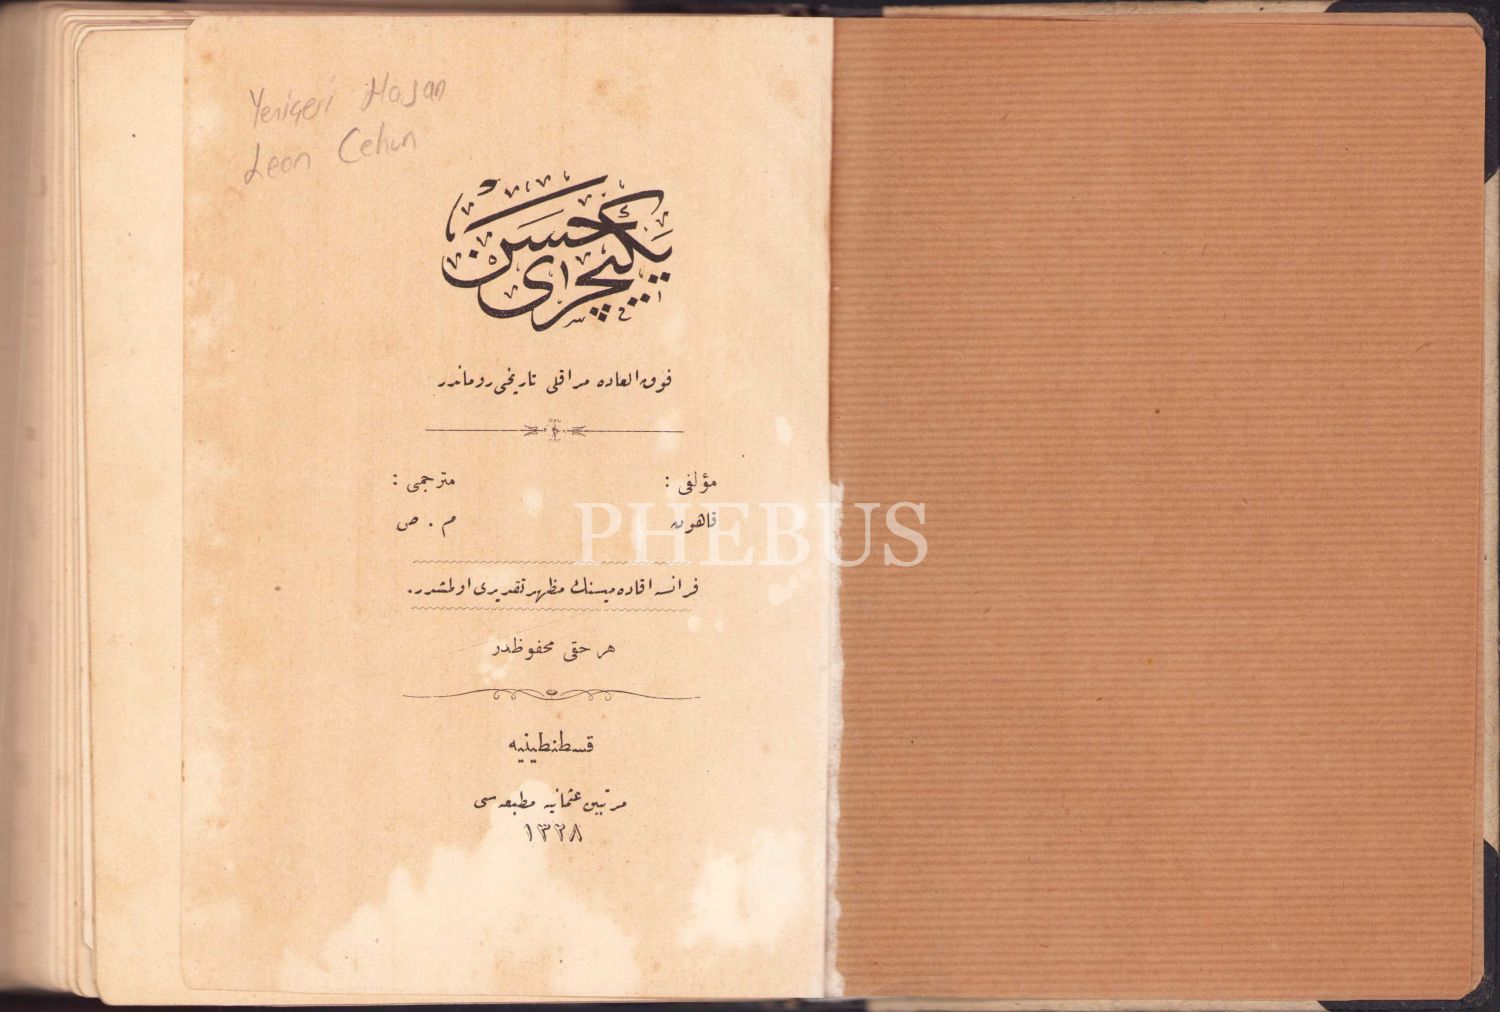 Yeniçeri Hasan
Leon Cehun
یکیچری حسن
فوق العاده مراقلی تاریخی روماندر
مؤلفی :
مترجمی :
قاهون
م . ص
PHEBUS
فرانسه اقاده‌میسنك مظهر تقدیری اولمشدر.
هر حقی محفوظدر
قسطنطینیه
مرتبین عثمانیه مطبعه‌سی
١٣٢٨